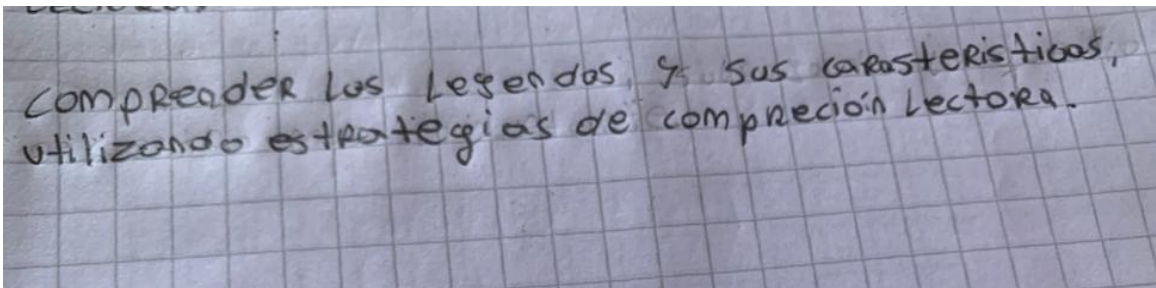 comprender Las Legendas, y sus carasteristicas,
utilizando estrategias de compreción Lectora.